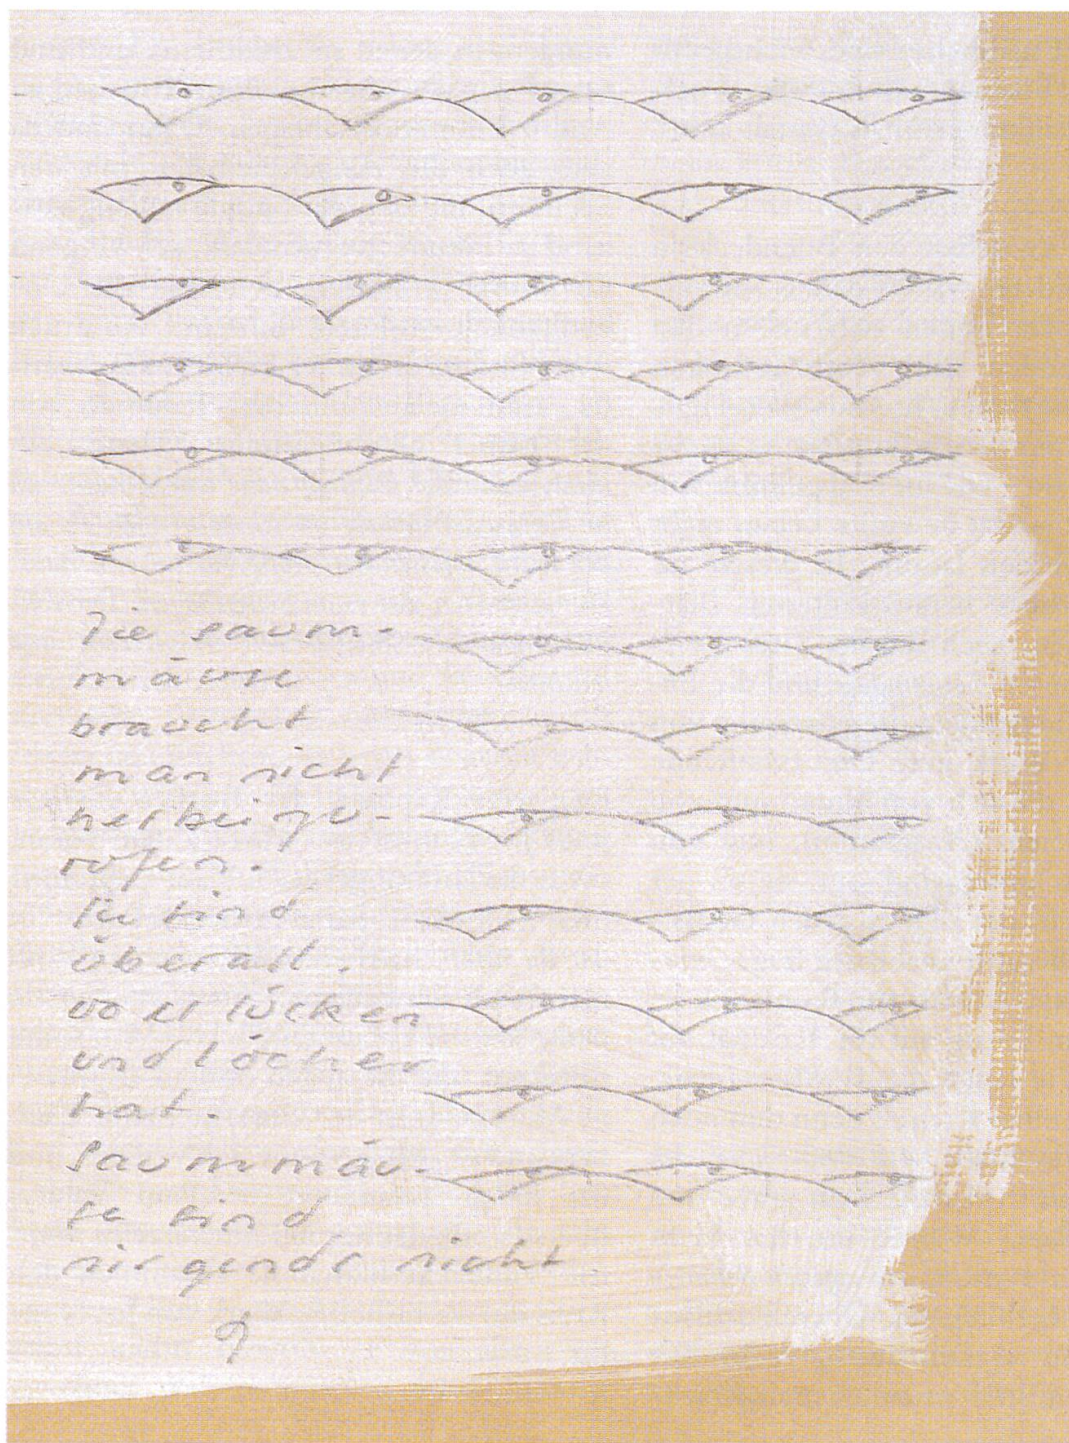 Die saum-
mäuse
braucht
man nicht
herbeizu-
rufen.
sie sind
überall.
wo es lücken
und löcher
hat.
saummäu-
se sind
nirgends nicht